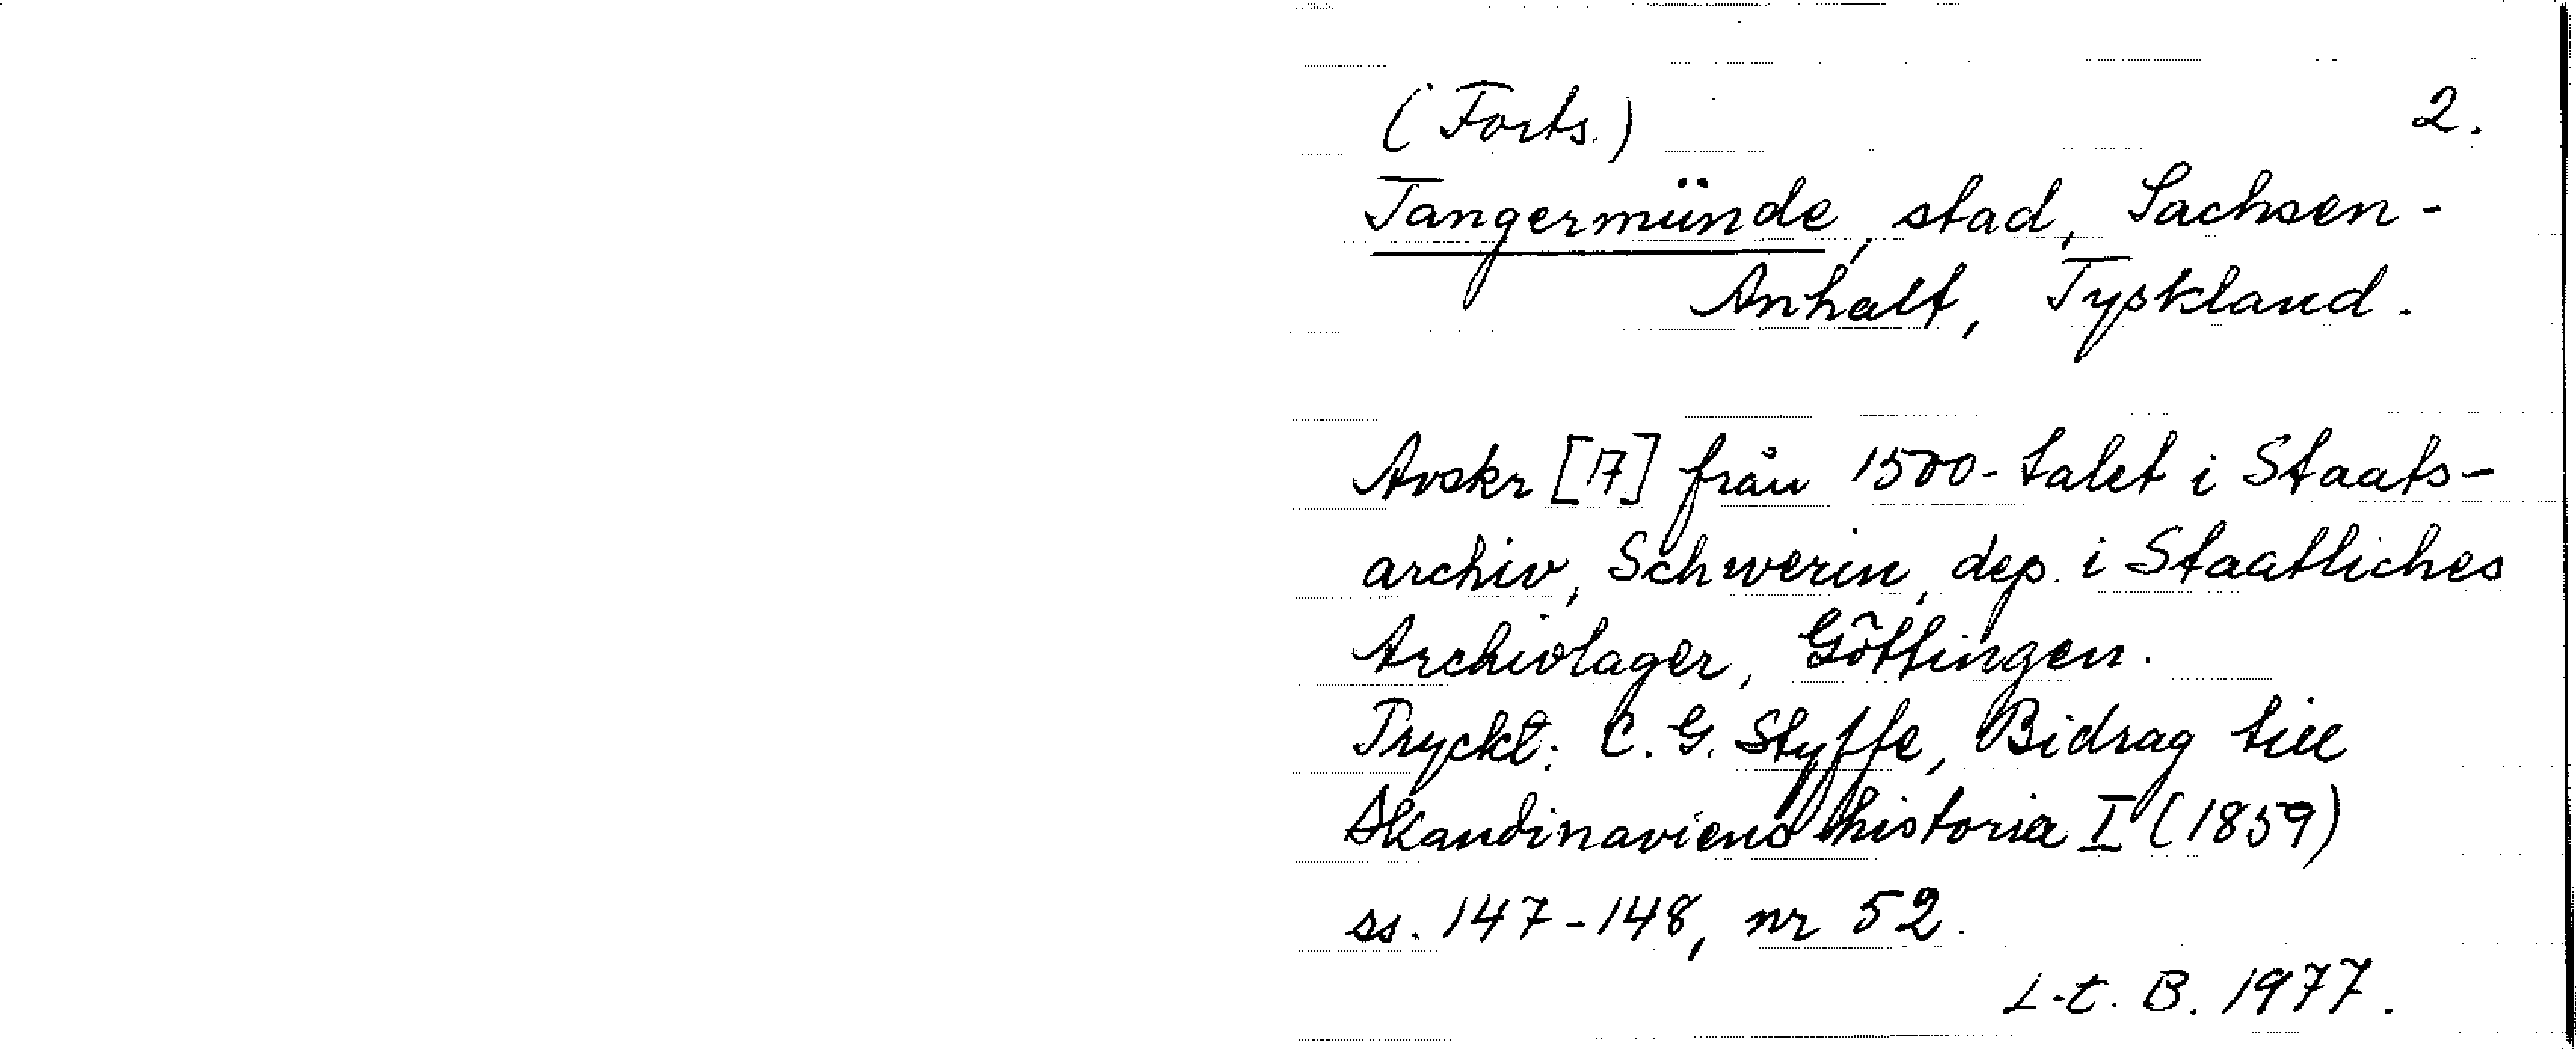 (Forts.) 2.
Tangermünde, stad, Sachsen-
Anhalt, Tyskland.
Avskr [17] från 1500-talet i Staats-
archiv, Schwerin, dep. i Staatliches
Archivlager, Göttingen.
Tryckt: C. G. Styffe, Bidrag till
Skandinaviens historia I (1859)
ss. 147-148, nr 52.
L-t. B. 1977.